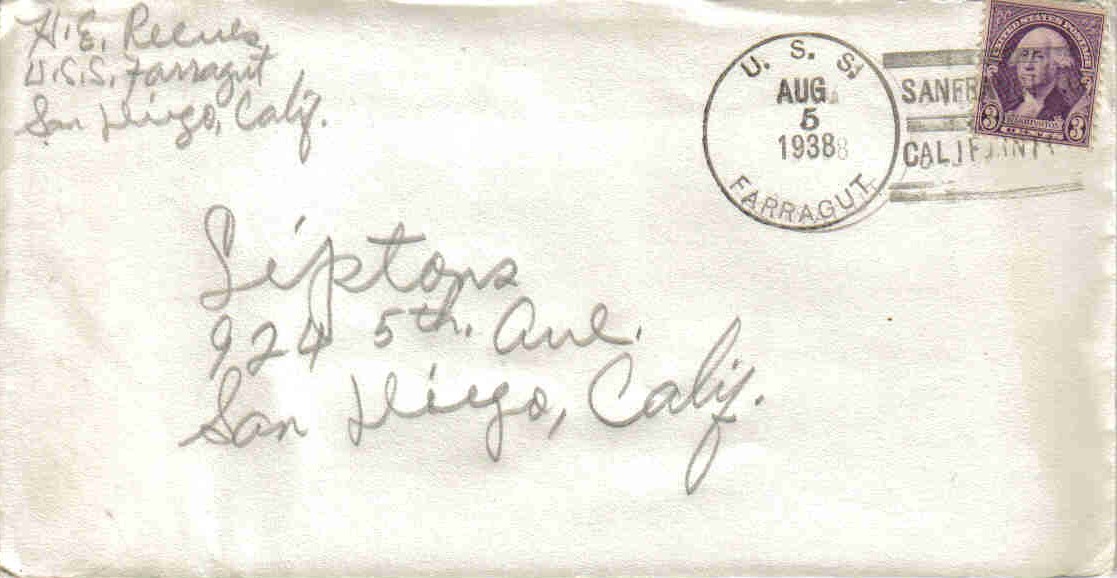 H.E. Reeves
U.S.S. Farragut
San Diego, Calif.
U. S. S.
AUG
5
1938
FARRAGUT
SANFRA
CALIFORNIA
UNITED STATES POSTAGE
WASHINGTON
3 3
Liptons
924 5th. Ave.
San Diego, Calif.